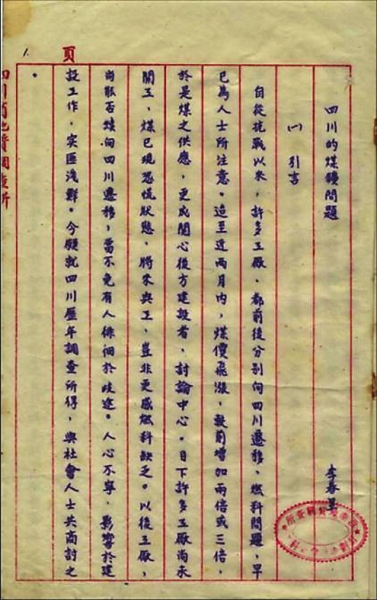 四川的煤鑛問題
李春昱
(一) 引言
自從抗戰以來，許多工廠，都前後分别向四川遷移，燃料問題，早
已為人士所注意。迨至近兩月内，煤價飛漲，較前增加兩倍或三倍，
於是煤之供應，更為關心後方建設者，討論中心。目下許多工廠尚未
開工，煤已現恐慌狀態，將來興工，豈非更感燃料缺乏。以後工廠，
尚能否續向四川遷移，當不免有人徘徊於歧途。人心不寧，影響於建
設工作，实匪浅鮮。今願就四川歷年調查所得，與社會人士共商討之
。
頁
1.
四川省地質調查所